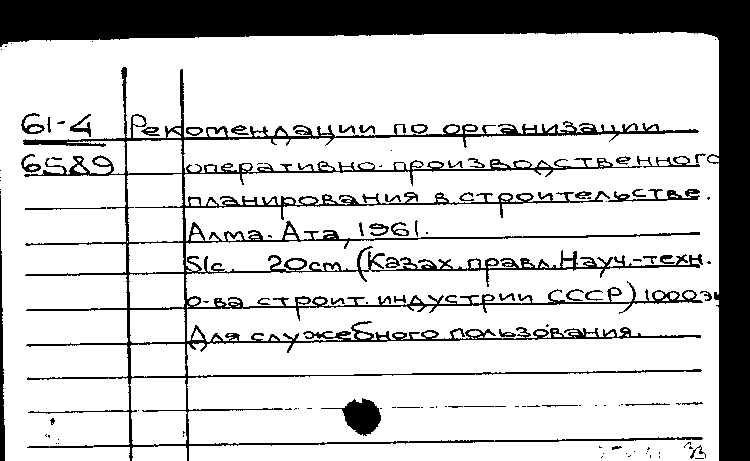 61-4 Рекомендации по организации
6589 оперативно-производственного
планирования в строительстве.
Алма-Ата, 1961.
51с. 20см. (Казах.правл.Науч.-техн.
о-ва строит. индустрии СССР) 1000эк
Для служебного пользования.